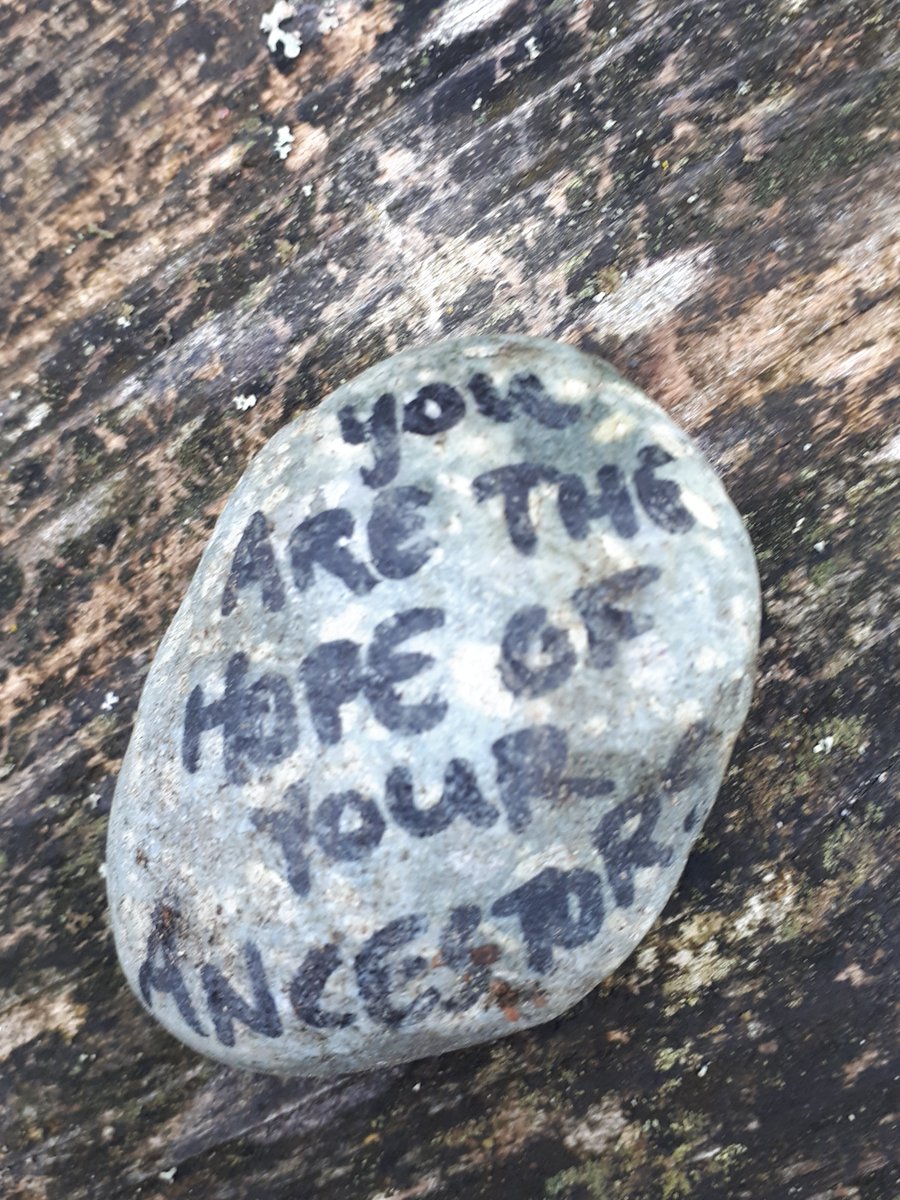 you
ARE THE
HOPE OF
YOUR
ANCESTORS